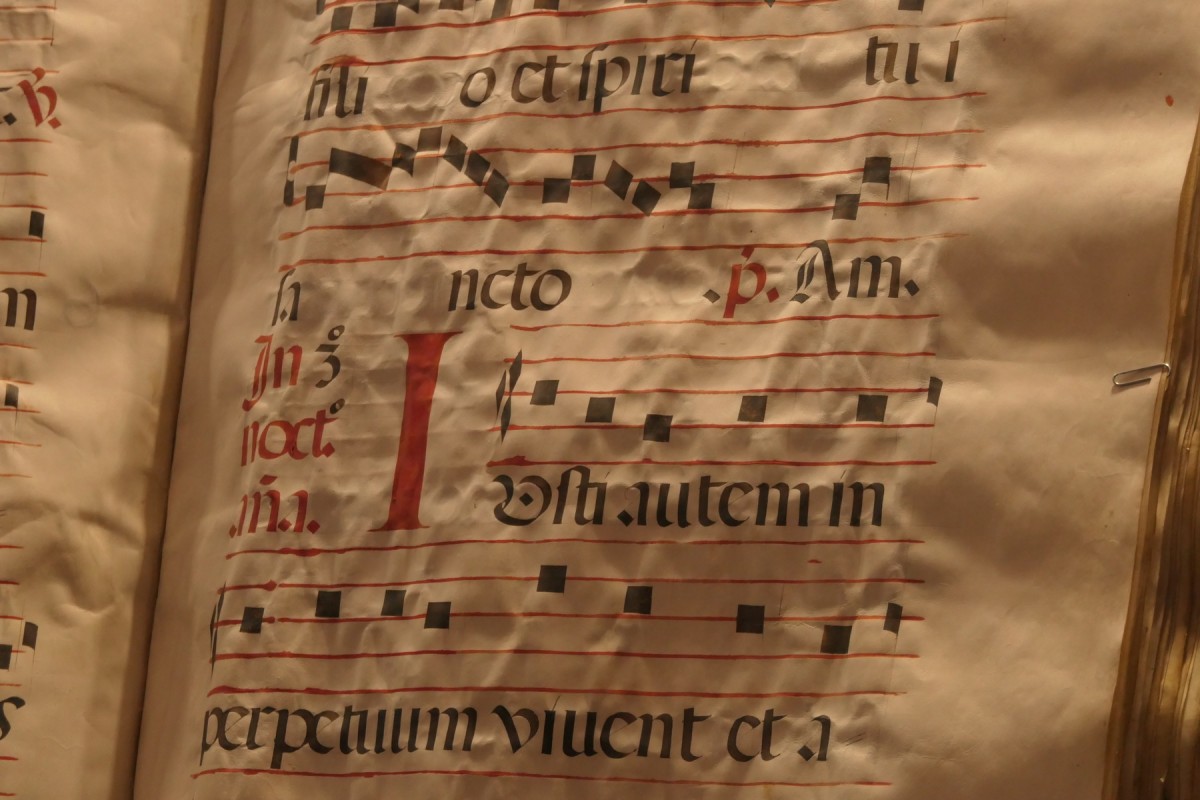 fili o et spiri tui
sa ncto .p. Am.
In 3°
noct.°
añ.a.
I Vsti autem in
perpetuum viuent et a